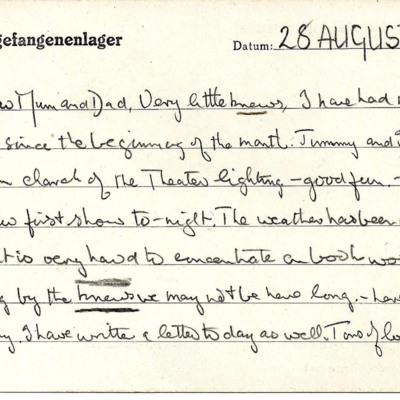 gefangenenlager
Datum: 28 AUGUST
Mum and Dad, Very little knews, I have had
since the beginning of the month. Jimmy and
charch of the Theater lighting - good fun. -
first show to-night. The weather has been
it is very hard to concentrate on book
by the knews we may not be here long. -
I have writte a letter to day as well. Tons of